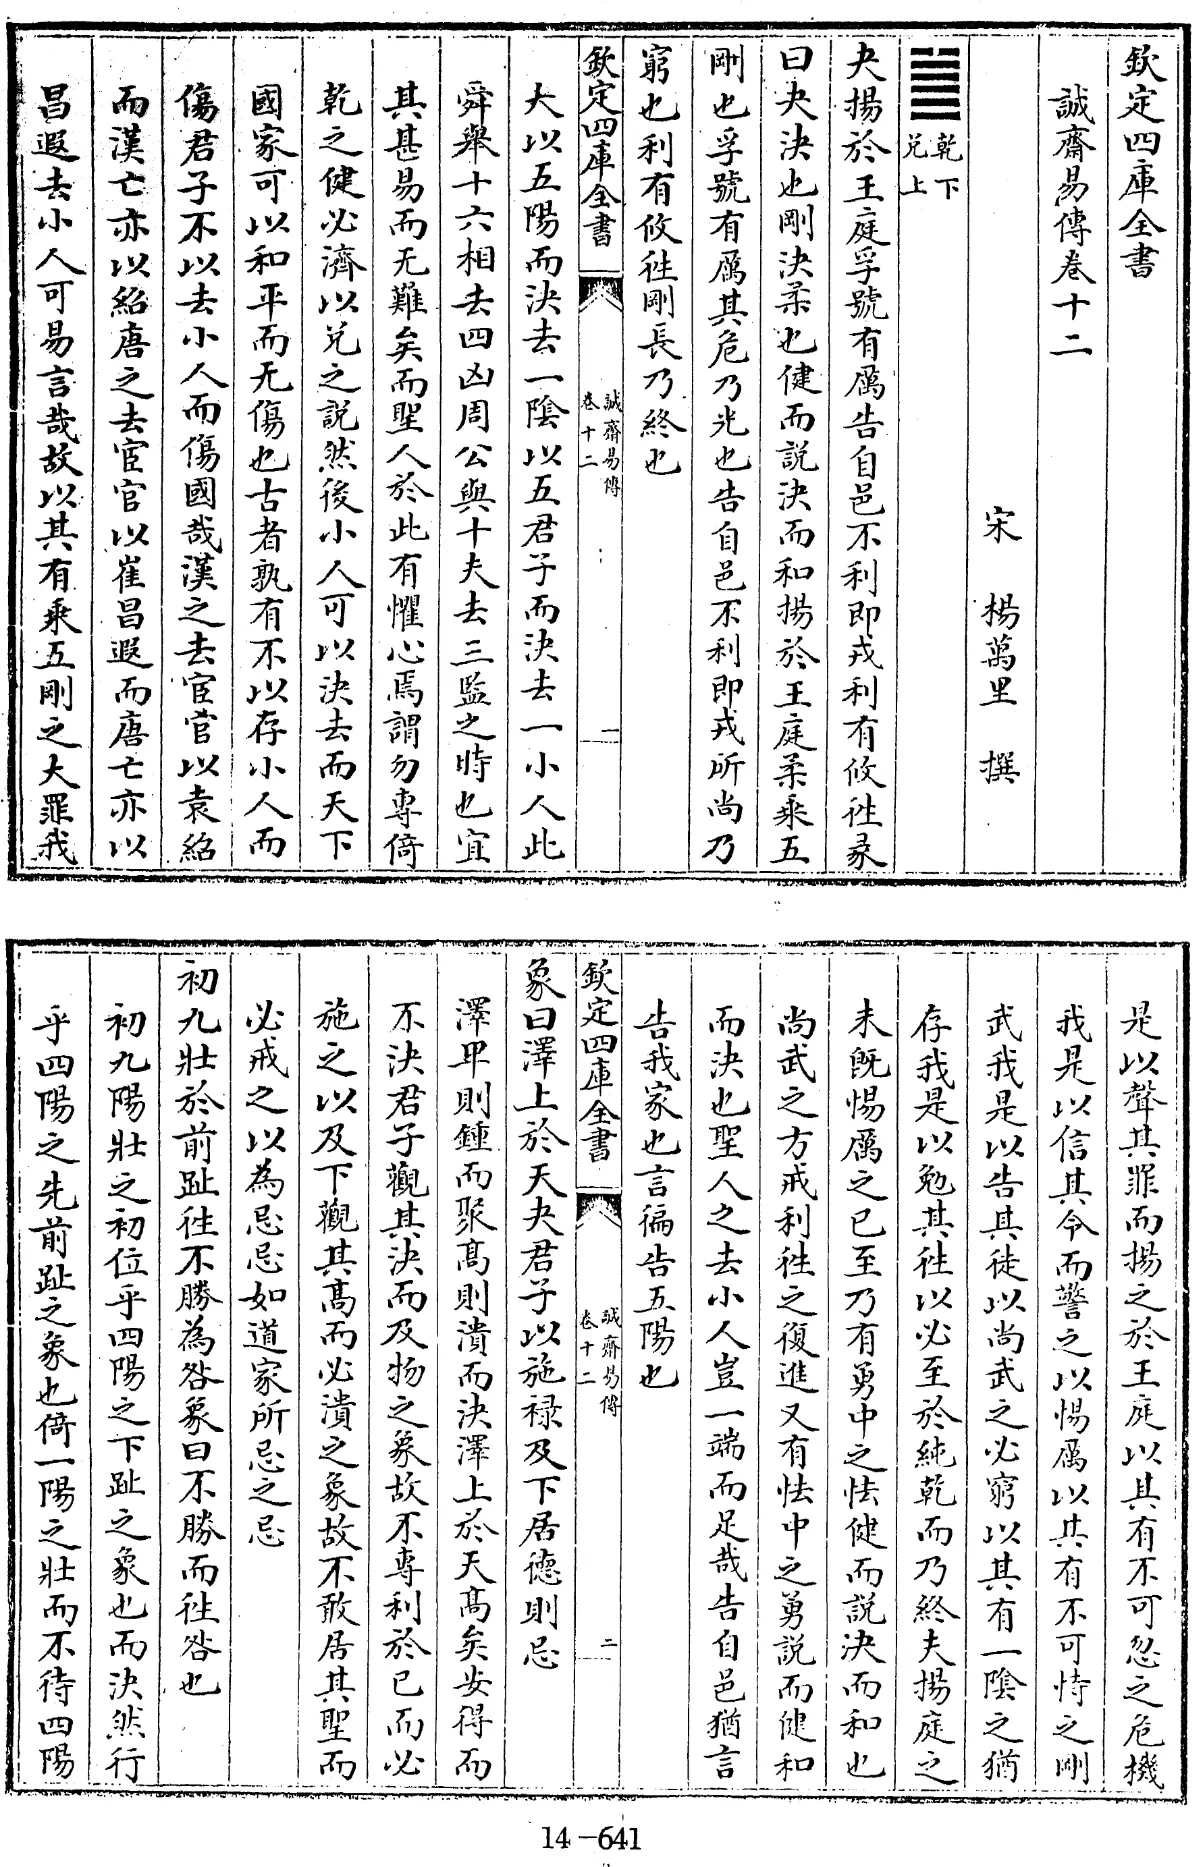 欽定四庫全書
誠齋易傳卷十二
宋 楊萬里 撰
乾下
兑上
夬揚於王庭孚號有厲告自邑不利即戎利有攸往彖
曰夬決也剛決柔也健而説決而和揚於王庭柔乘五
剛也孚號有厲其危乃光也告自邑不利即戎所尚乃
窮也利有攸往剛長乃終也
欽定四庫全書
誠齋易傳
卷十二
一
大以五陽而決去一陰以五君子而決去一小人此
舜舉十六相去四凶周公與十夫去三監之時也宜
其甚易而无難矣而聖人於此有懼心焉謂勿專倚
乾之健必濟以兑之説然後小人可以決去而天下
國家可以和平而无傷也古者孰有不以存小人而
傷君子不以去小人而傷國哉漢之去宦官以袁紹
而漢亡亦以紹唐之去宦官以崔昌遐而唐亡亦以
昌遐去小人可易言哉故以其有乘五剛之大罪我
是以聲其罪而揚之於王庭以其有不可忽之危機
我是以信其令而警之以惕厲以其有不可恃之剛
武我是以告其徒以尚武之必窮以其有一陰之猶
存我是以勉其往以必至於純乾而乃終夫揚庭之
未既惕厲之已至乃有勇中之怯健而説決而和也
尚武之方戒利往之復進又有怯中之勇説而健和
而決也聖人之去小人豈一端而足哉告自邑猶言
告我家也言徧告五陽也
欽定四庫全書
誠齋易傳
卷十二
二
象曰澤上於天夬君子以施禄及下居德則忌
澤卑則鍾而聚高則潰而決澤上於天高矣安得而
不決君子觀其決而及物之象故不專利於已而必
施之以及下觀其高而必潰之象故不敢居其聖而
必戒之以為忌忌如道家所忌之忌
初九壯於前趾往不勝為咎象曰不勝而往咎也
初九陽壯之初位乎四陽之下趾之象也而決然行
乎四陽之先前趾之象也倚一陽之壯而不待四陽
14-641